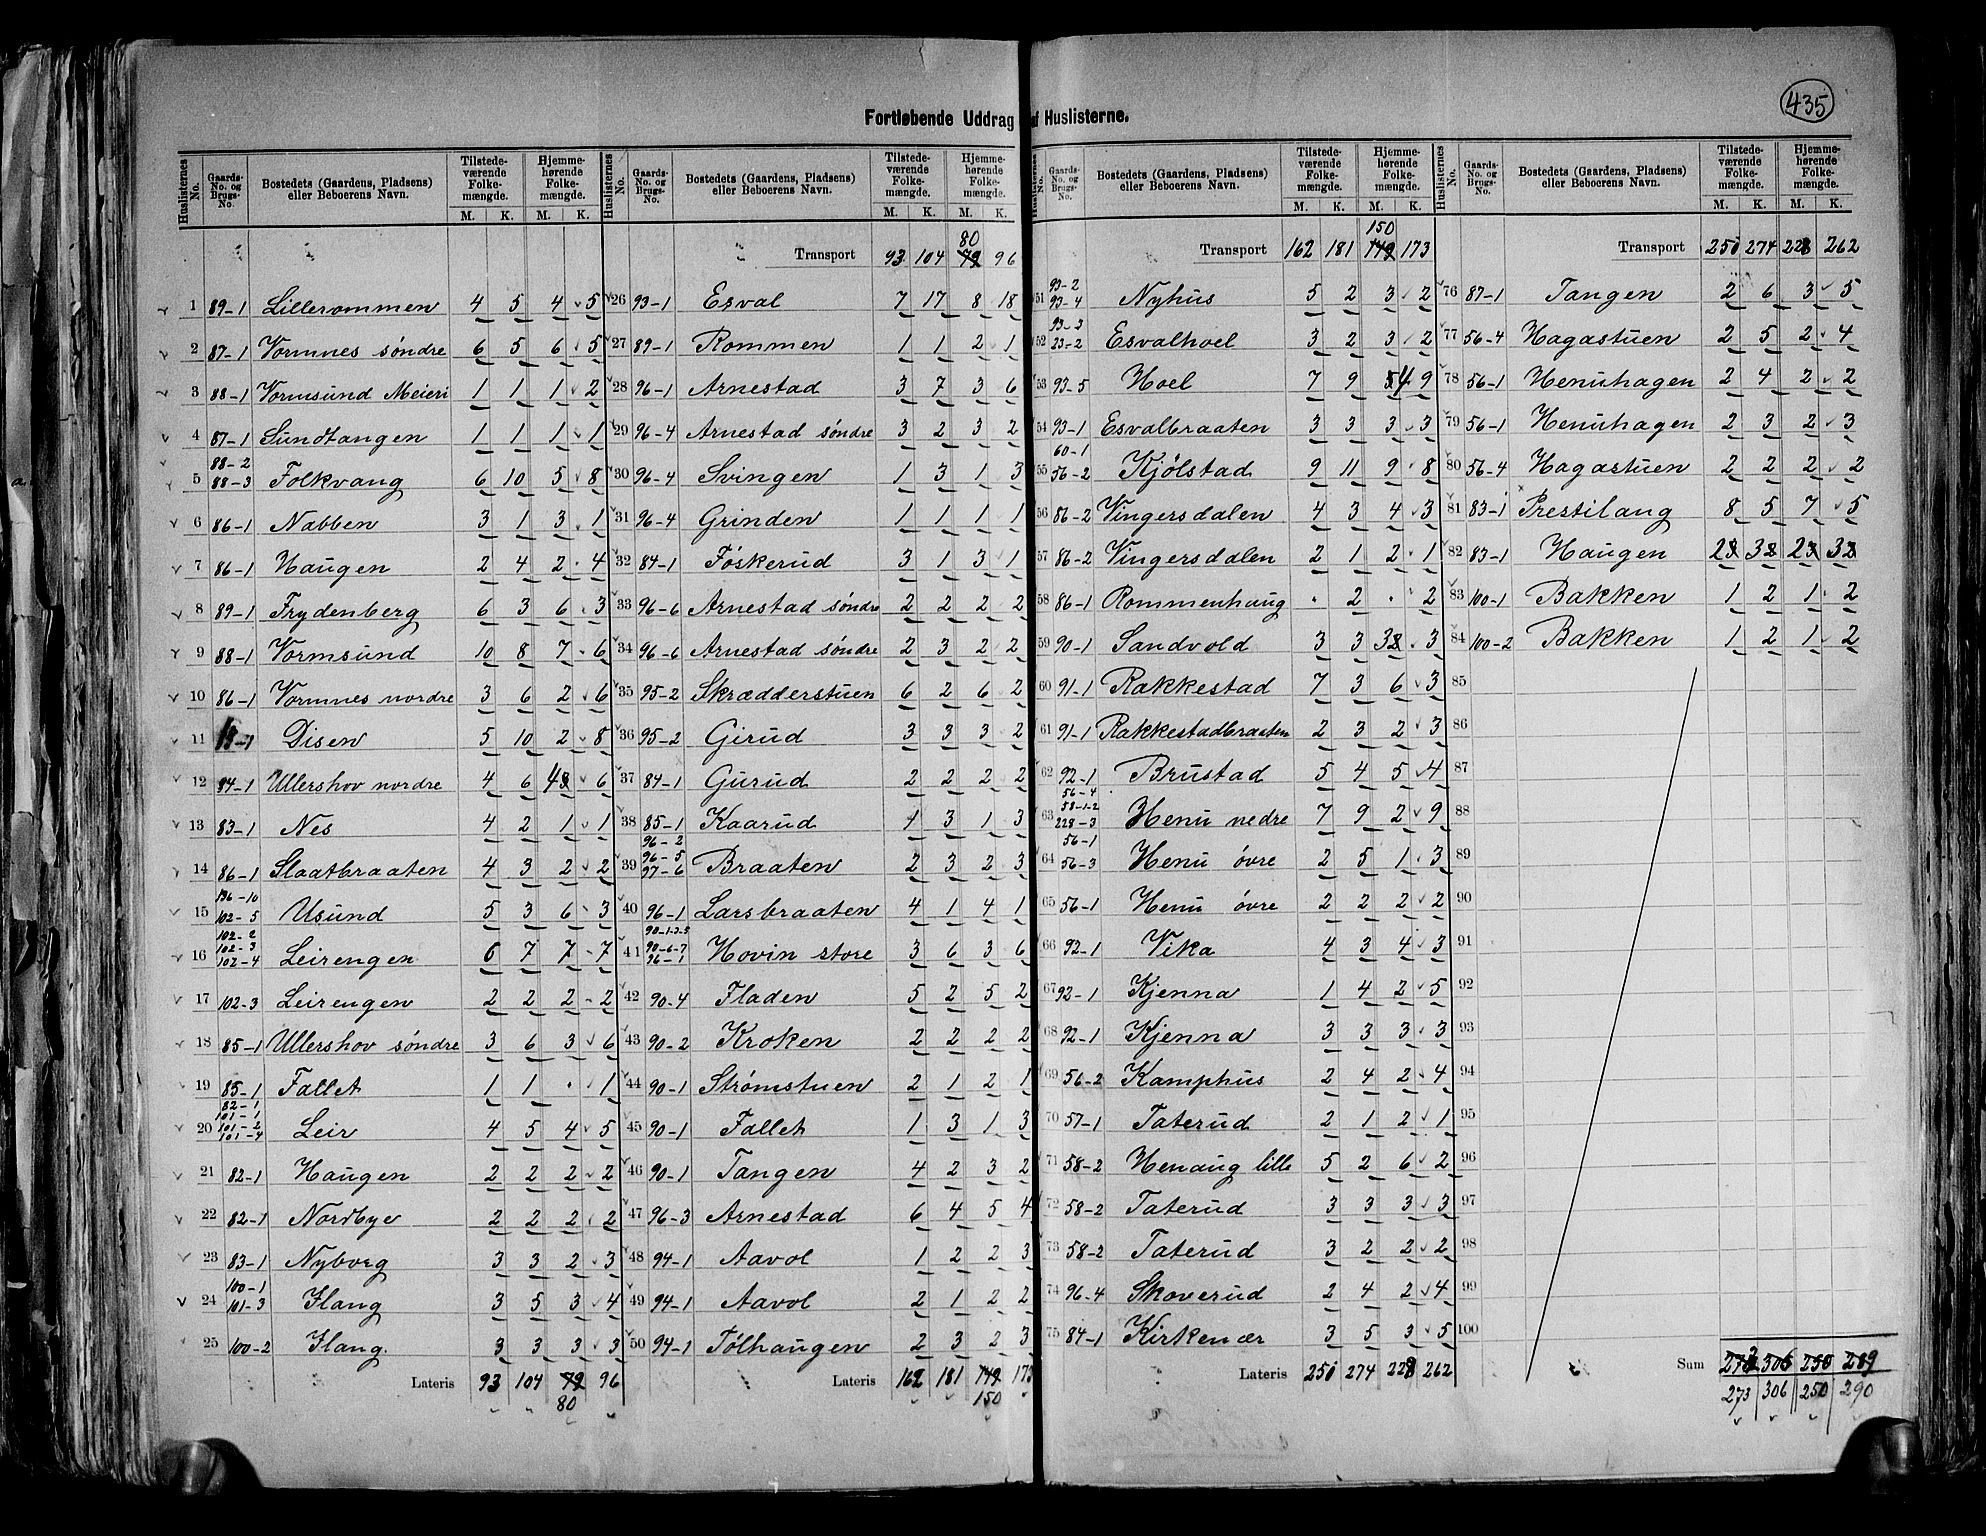 435
Fortløbende Uddrag af Huslisterne.
Huslisternes No. | Gaards-No. og Brugs-No. | Bostedets (Gaardens, Pladsens) eller Beboerens Navn. | Tilstedeværende Folkemængde. M. K. | Hjemmehørende Folkemængde. M. K.
1 89-1 Lillerommen 4 5 4 5
2 87-1 Vormnes søndre 6 5 6 5
3 88-1 Vormsund Meieri 1 1 1 2
4 87-1 Sundtangen 1 1 1 1
5 88-2 88-3 Folkvang 6 10 5 8
6 86-1 Nabben 3 1 3 1
7 86-1 Haugen 2 4 2 4
8 89-1 Frydenberg 6 3 6 3
9 88-1 Vormsund 10 8 7 6
10 86-1 Vormnes nordre 3 6 2 6
11 Disen 5 10 2 8
12 84-1 Ullershov nordre 4 6 4 6
13 83-1 Nes 4 2 1 1
14 86-1 Slaatbraaten 4 3 2 2
15 136-10 102-5 Usund 5 3 6 3
16 102-2 102-3 102-4 Leirengen 6 7 7 7
17 102-3 Leirengen 2 2 2 2
18 85-1 Ullershov søndre 3 6 3 6
19 85-1 Fallet 1 1 . 1
20 82-1 101-1 101-2 101-4 Leir 4 5 4 5
21 82-1 Haugen 2 2 2 2
22 82-1 Nordbye 2 2 2 2
23 83-1 Nyborg 3 3 2 3
24 100-1 101-3 Ilang 3 5 3 4
25 100-2 Ilang. 3 3 3 3
Lateris 93 104 79 96
80
Transport 93 104 79 80 96
26 93-1 Esval 7 17 8 18
27 89-1 Rommen 1 1 2 1
28 96-1 Arnestad 3 7 3 6
29 96-4 Arnestad søndre 3 2 3 2
30 96-4 Svingen 1 3 1 3
31 96-4 Grinden 1 1 1 1
32 84-1 Føskerud 3 1 3 1
33 96-6 Arnestad søndre 2 2 2 2
34 96-6 Arnestad søndre 2 3 2 2
35 95-2 Skrædderstuen 6 2 6 2
36 95-2 Girud 3 3 3 2
37 84-1 Gurud 2 2 2 2
38 85-1 Kaarud 1 3 1 3
39 96-2 96-5 97-6 Braaten 2 3 2 3
40 96-1 Larsbraaten 4 1 4 1
41 90-1-3-5 90-6-7 96-1 Hovin store 3 6 3 6
42 90-4 Fladen 5 2 5 2
43 90-2 Kroken 2 2 2 2
44 90-1 Strømstuen 2 1 2 1
45 90-1 Fallet 1 3 1 3
46 90-1 Tangen 4 2 3 2
47 96-3 Arnestad 6 4 5 4
48 94-1 Aavol 1 2 2 3
49 94-1 Aavol 2 1 2 2
50 94-1 Tølhaugen 2 3 2 3
Lateris 162 181 149 173
150
Transport 162 181 149 150 173
51 93-2 93-4 Nyhus 5 2 3 2
52 93-3 23-2 Esvalhoel 3 2 3 2
53 93-5 Hoel 7 9 4 9
54 93-1 Esvalbraaten 3 3 3 3
55 60-1 56-2 Kjølstad 9 11 9 8
56 86-2 Vingersdalen 4 3 4 3
57 86-2 Vingersdalen 2 1 2 1
58 86-1 Rommenhaug . 2 . 2
59 90-1 Sandvold 3 3 3 3
60 91-1 Rakkestad 7 3 6 3
61 91-1 Rakkestadbraaten 2 3 2 3
62 92-1 Brustad 5 4 5 4
63 56-4 58-1-2 228-3 Henu nedre 7 9 2 9
64 56-1 56-3 Henu øvre 2 5 1 3
65 56-1 Henu øvre 2 2 2 2
66 92-1 Vika 4 3 4 3
67 92-1 Kjenna 1 4 2 5
68 92-1 Kjenna 3 3 3 3
69 56-2 Kamphus 2 4 2 4
70 57-1 Taterud 2 1 2 1
71 58-2 Henaug lille 5 2 6 2
72 58-2 Taterud 3 3 3 3
73 58-2 Taterud 3 2 2 2
74 96-4 Skoverud 2 4 2 4
75 84-1 Kirkenær 3 5 3 5
Lateris 250 274 228 262
Transport 250 274 228 262
76 87-1 Tangen 2 6 3 5
77 56-4 Hagastuen 2 5 2 4
78 56-1 Henuhagen 2 4 2 2
79 56-1 Henuhagen 2 3 2 3
80 56-4 Hagastuen 2 2 2 2
81 83-1 Prestilang 8 5 7 5
82 83-1 Haugen 2 3 2 3
83 100-1 Bakken 1 2 1 2
84 100-2 Bakken 1 2 1 2
85
86
87
88
89
90
91
92
93
94
95
96
97
98
99
100
Sum 306 250 289
273 306 250 290